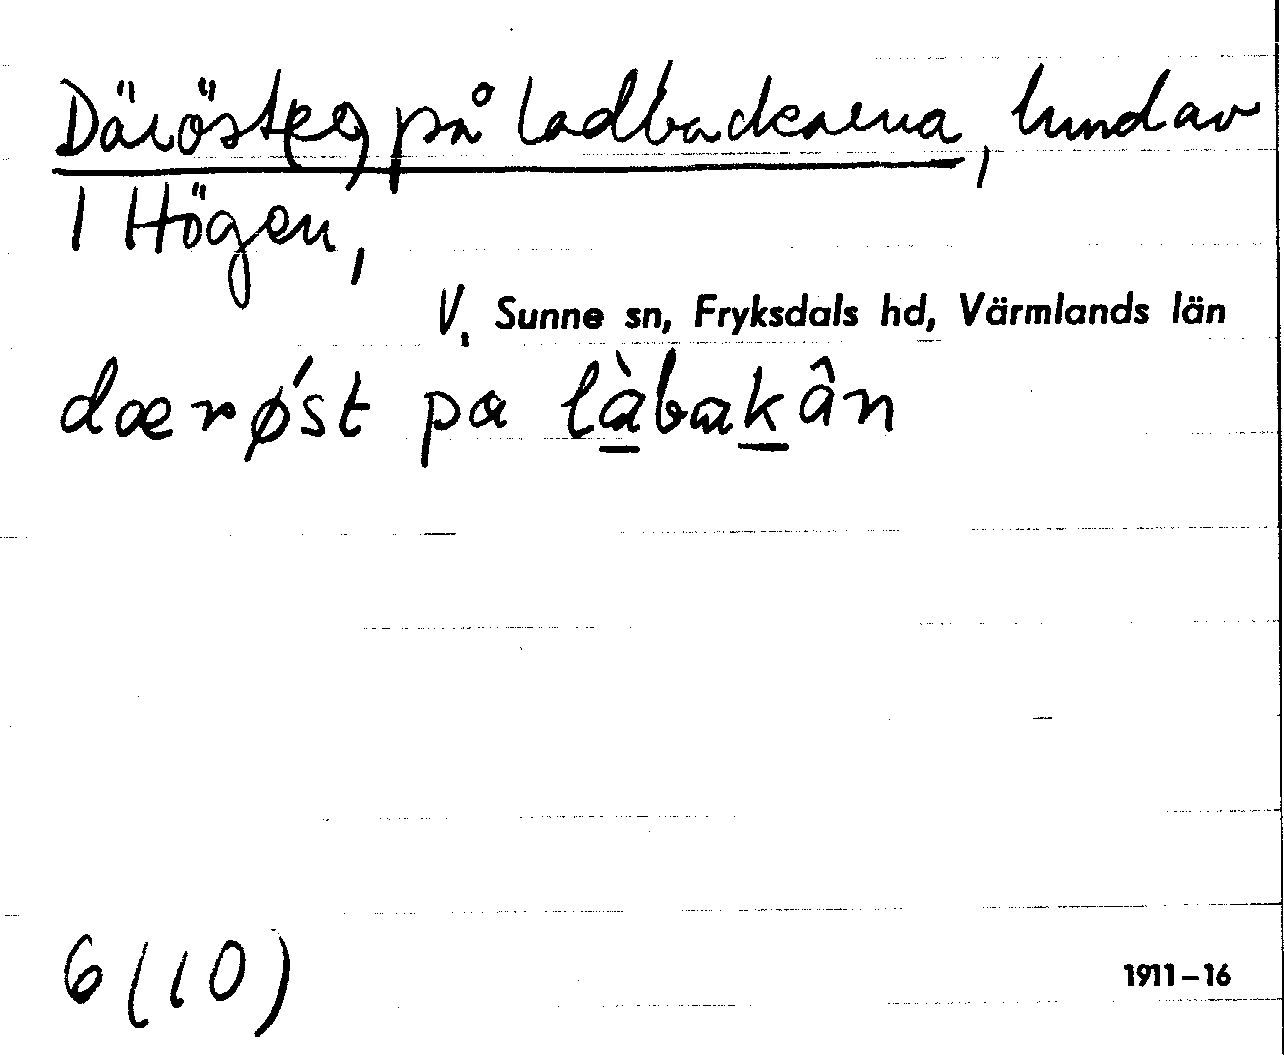 Däröst(e) på Ladbackarna, hmd av
1 Högen,
V. Sunne sn, Fryksdals hd, Värmlands län
dærǿst pa làbakân
6 (10)
1911–16